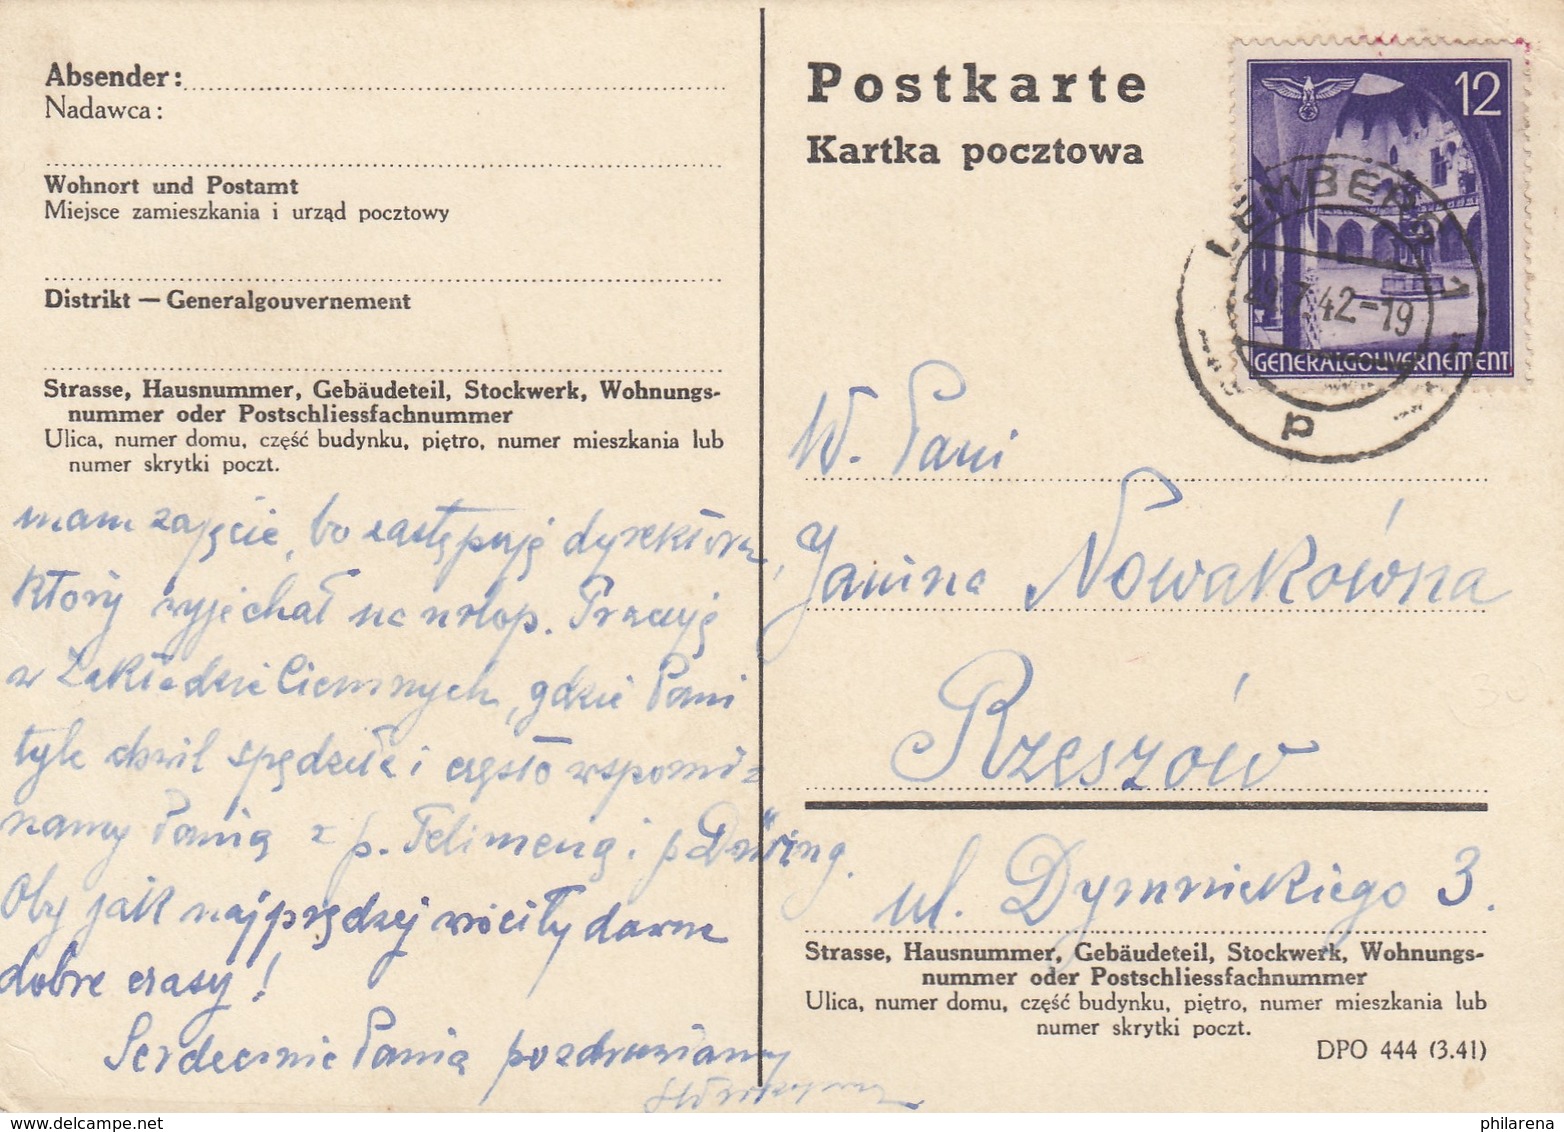 Absender:
Nadawca:
Wohnort und Postamt
Miejsce zamieszkania i urząd pocztowy
Distrikt — Generalgouvernement
Strasse, Hausnummer, Gebäudeteil, Stockwerk, Wohnungs-
nummer oder Postschliessfachnummer
Ulica, numer domu, część budynku, piętro, numer mieszkania lub
numer skrytki poczt.
mam zajęcie, bo zastępuję dyrektora,
który wyjechał na urlop. Pracuję
w Zakładzie Ciemnych, gdzie Pani
tyle chwil spędziła i często wspomi=
namy Panią z p. Felimeną i p. Düring.
Oby jak najprędzej wróciły dawne
dobre czasy!
Serdecznie Panią pozdrawiamy
Postkarte
Kartka pocztowa
12
GENERALGOUVERNEMENT
LEMBERG 1
7.42-19
p
W. Pani
Janina Nowakówna
Rzeszów
ul. Dymnickiego 3.
Strasse, Hausnummer, Gebäudeteil, Stockwerk, Wohnungs-
nummer oder Postschliessfachnummer
Ulica, numer domu, część budynku, piętro, numer mieszkania lub
numer skrytki poczt.
DPO 444 (3.41)
30
philarena